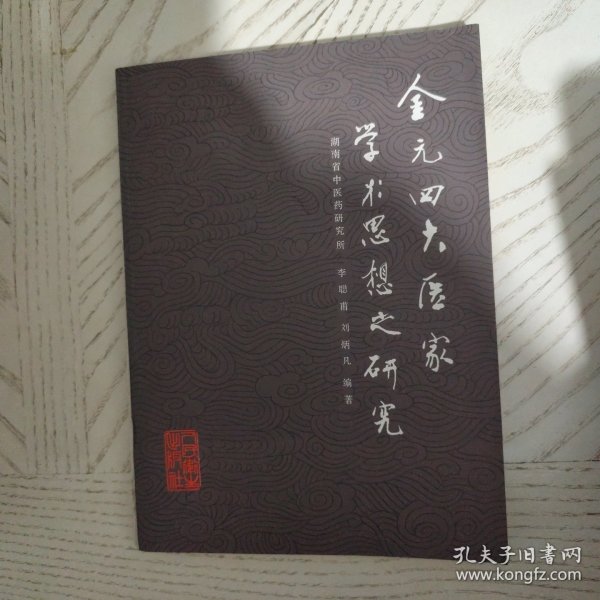 金元四大医家
学术思想之研究
湖南省中医药研究所 李聪甫 刘炳凡 编著
人民卫生出版社
孔夫子旧书网
www.kongfz.com